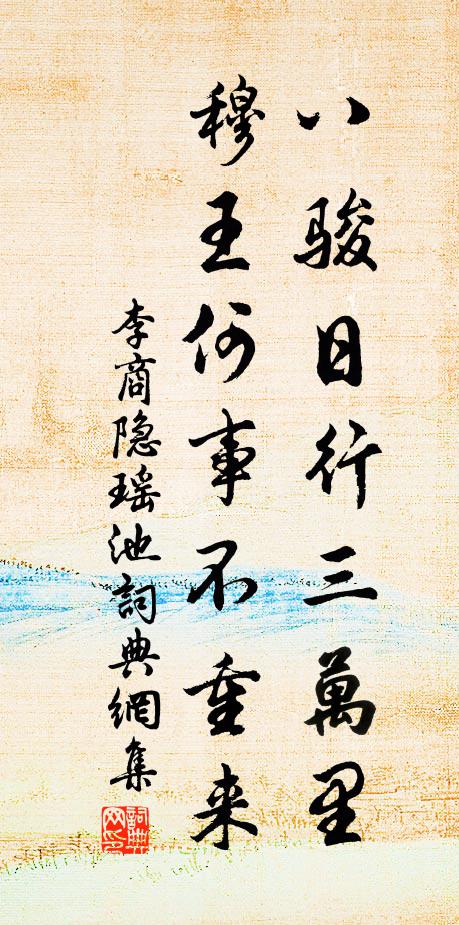 八骏日行三萬里
穆王何事不重来
李商隐瑶池詞典網集
詞典网印